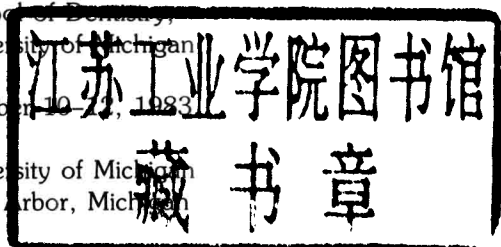 of Dentistry,
University of Michigan
江苏工业学院图书馆
10–12, 1983
藏书章
University of Michigan
Arbor, Michigan